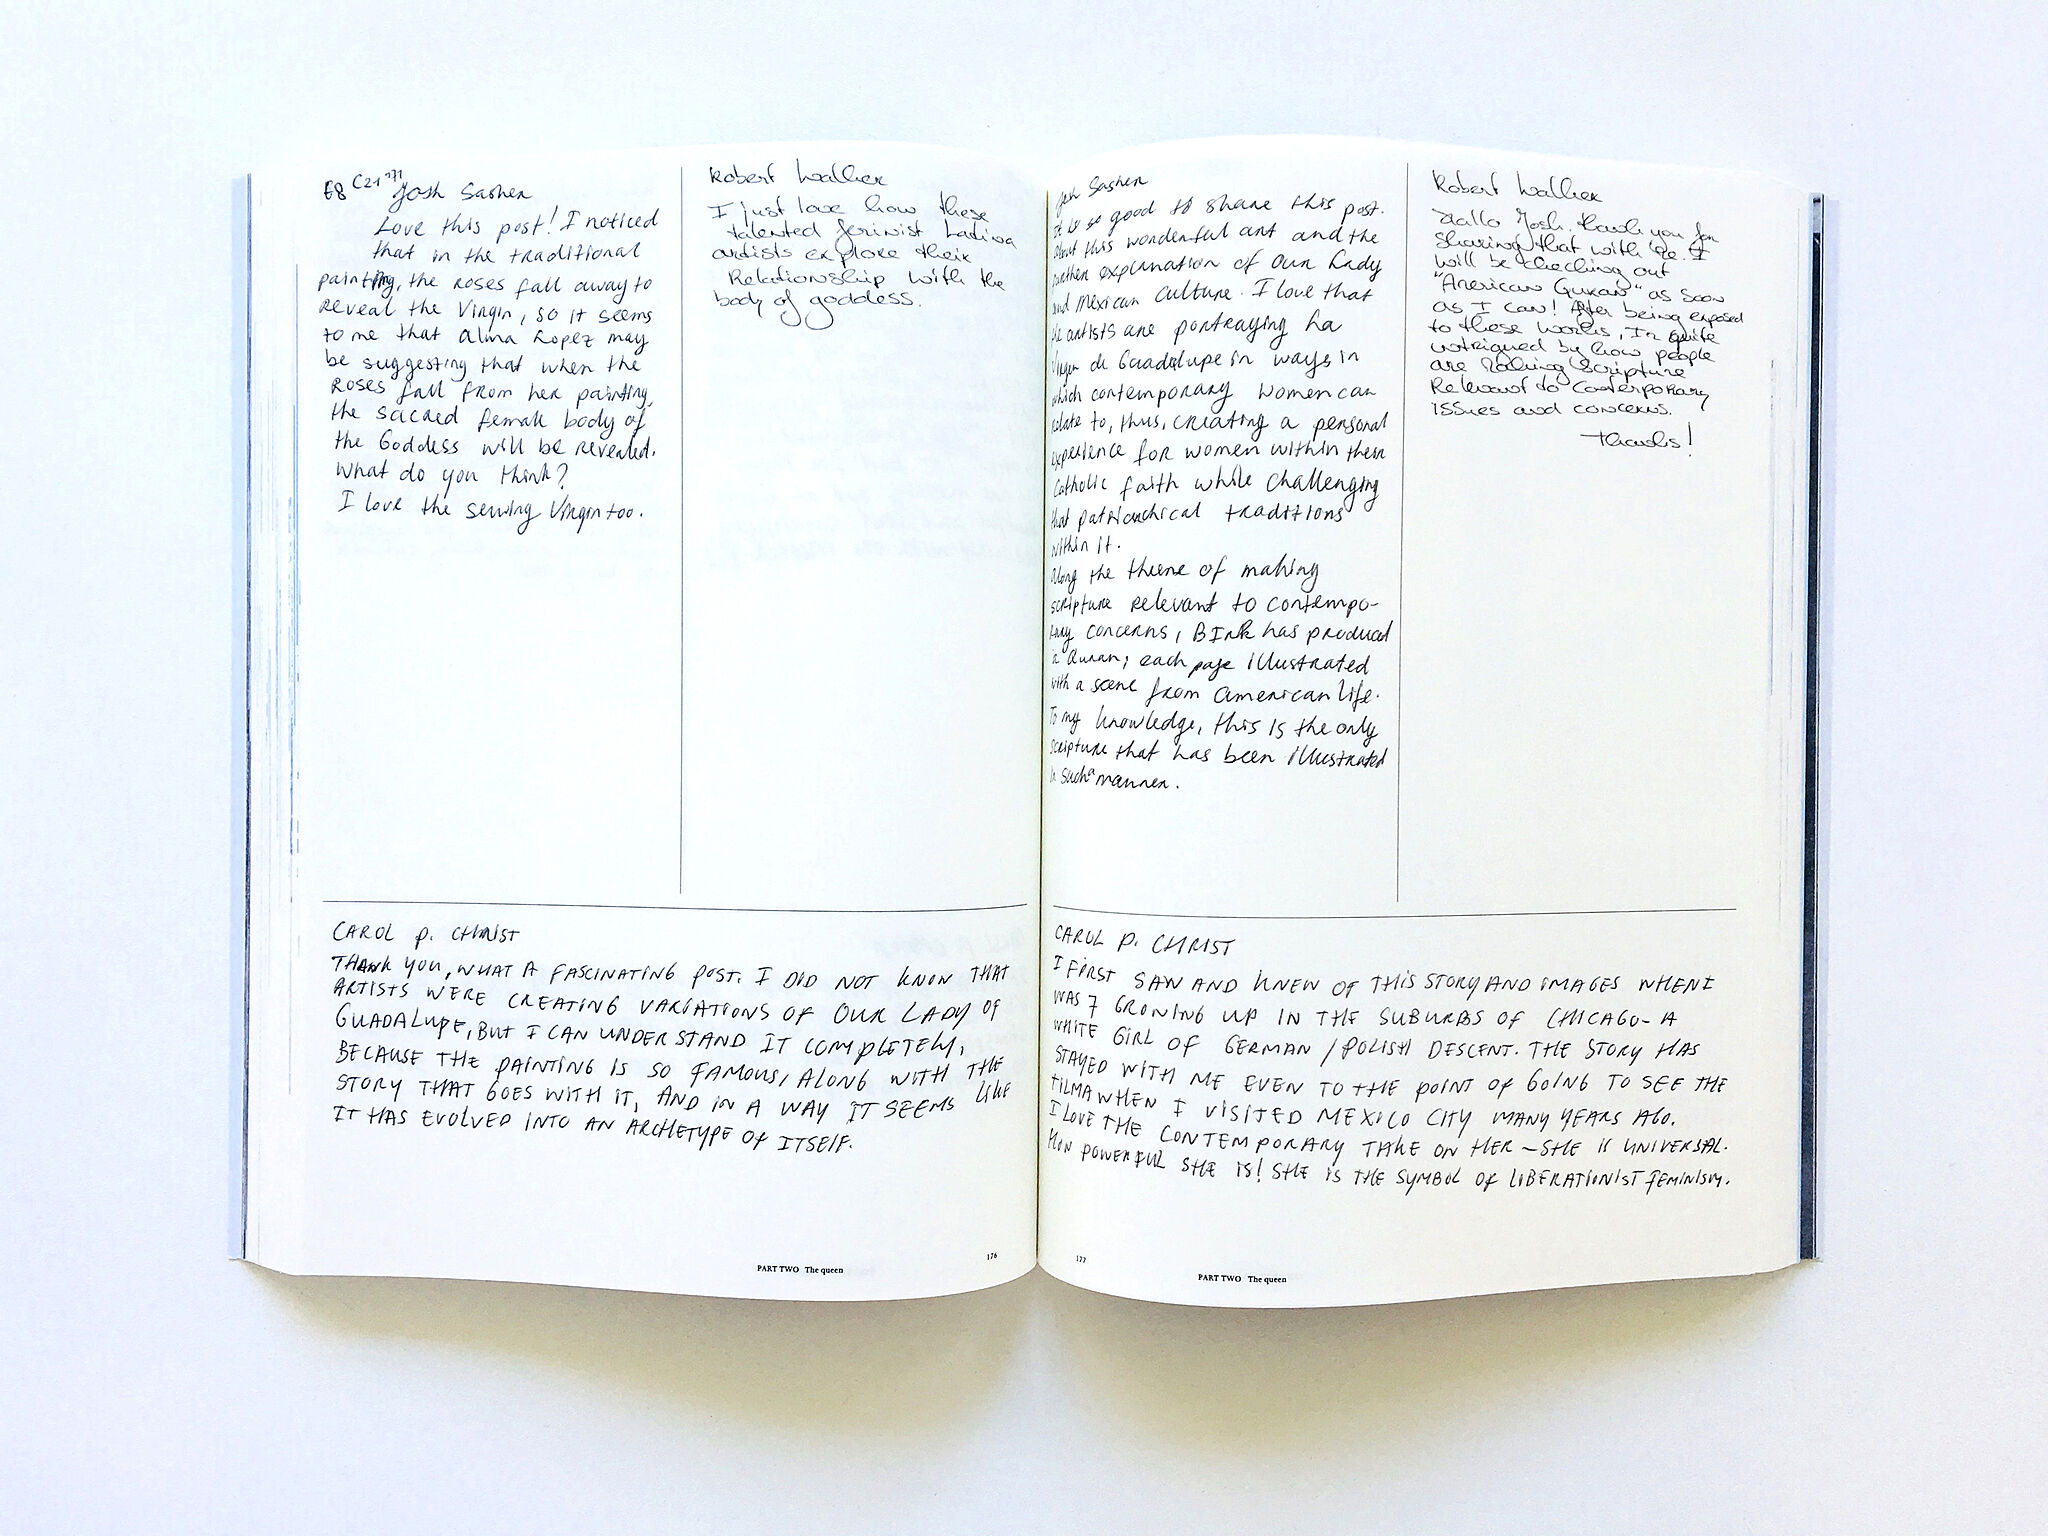 68 C21 171 Josh Sasher
Love this post! I noticed
that in the traditional
painting, the roses fall away to
reveal the Virgin, so it seems
to me that Alma Lopez may
be suggesting that when the
roses fall from her painting,
the sacred female body of
the Goddess will be revealed.
What do you think?
I love the sewing Virgin too.
Robert Walker
I just love how these
talented feminist Latina
artists explore their
Relationship with the
body of goddess.
CAROL P. CHRIST
THANK YOU, WHAT A FASCINATING POST. I DID NOT KNOW THAT
ARTISTS WERE CREATING VARIATIONS OF OUR LADY OF
GUADALUPE, BUT I CAN UNDERSTAND IT COMPLETELY,
BECAUSE THE PAINTING IS SO FAMOUS, ALONG WITH THE
STORY THAT GOES WITH IT, AND IN A WAY IT SEEMS LIKE
IT HAS EVOLVED INTO AN ARCHETYPE OF ITSELF.
PART TWO The queen
176
Josh Sasher
It is so good to share this post.
about this wonderful art and the
further explanation of Our Lady
and Mexican culture. I love that
the artists are portraying La
Virgen de Guadalupe in ways in
which contemporary women can
relate to, thus, creating a personal
experience for women within their
Catholic faith while challenging
that patriarchical traditions
within it.
Along the theme of making
scripture relevant to contempo-
rary concerns, BIrk has produced
a Quran; each page illustrated
with a scene from American life.
To my knowledge, this is the only
scripture that has been illustrated
in such a manner.
Robert Walker
Hallo Josh, thank you for
sharing that with me. I
will be checking out
"American Quran" as soon
as I can! After being exposed
to these works, I'm quite
intrigued by how people
are making scripture
Relevant to Contemporary
issues and concerns.
Thanks!
CAROL P. CHRIST
I FIRST SAW AND KNEW OF THIS STORY AND IMAGES WHEN I
WAS 7 GROWING UP IN THE SUBURBS OF CHICAGO - A
WHITE GIRL OF GERMAN / POLISH DESCENT. THE STORY HAS
STAYED WITH ME EVEN TO THE POINT OF GOING TO SEE THE
TILMA WHEN I VISITED MEXICO CITY MANY YEARS AGO.
I LOVE THE CONTEMPORARY TAKE ON HER - SHE IS UNIVERSAL.
HOW POWERFUL SHE IS! SHE IS THE SYMBOL OF LIBERATIONIST FEMINISM.
177
PART TWO The queen